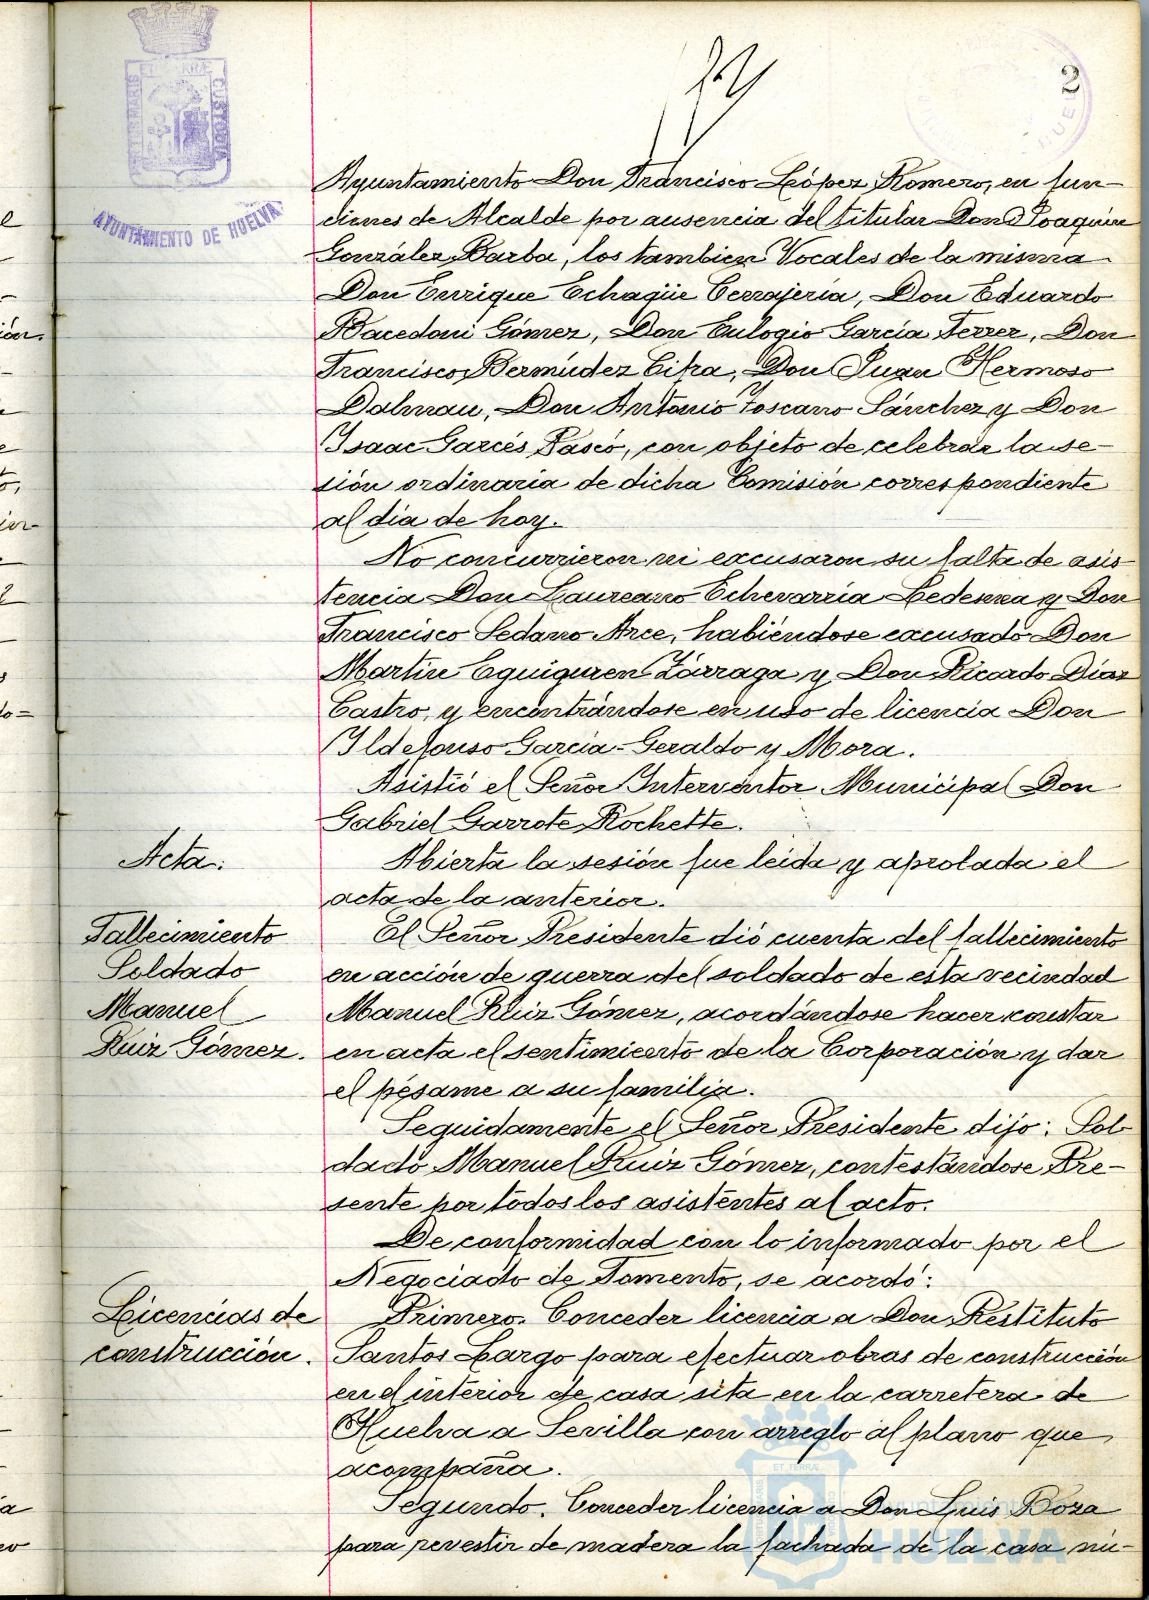 2
AYUNTAMIENTO DE HUELVA
Ayuntamiento Don Francisco López Romero, en fun-
ciones de Alcalde por ausencia del titular Don Joaquín
González Barba, los tambien Vocales de la misma
Don Enrique Echagüe Cerrajería, Don Eduardo
Bacedoni Gómez, Don Eulogio García Ferrer, Don
Francisco Bermúdez Cifra, Don Juan Hermoso
Dalmau, Don Antonio Toscano Sánchez y Don
Isaac Garcés Pascó, con objeto de celebrar la se-
sión ordinaria de dicha Comisión correspondiente
al día de hoy.
No concurrieron ni excusaron su falta de asis-
tencia Don Laureano Echevarría Ledesma y Don
Francisco Sedano Arce, habiéndose excusado Don
Martín Eguiguren Zárraga y Don Ricardo Díaz
Castro, y encontrándose en uso de licencia Don
Ildefonso García-Geraldo y Mora.
Asistió el Señor Interventor Municipal Don
Gabriel Garrote Rochette.
Acta.
Abierta la sesión fue leida y aprobada el
acta de la anterior.
Fallecimiento
Soldado
Manuel
Ruiz Gómez.
El Señor Presidente dió cuenta del fallecimiento
en acción de guerra del soldado de esta vecindad
Manuel Ruiz Gómez, acordándose hacer constar
en acta el sentimiento de la Corporación y dar
el pésame a su familia.
Seguidamente el Señor Presidente dijo: Sol-
dado Manuel Ruiz Gómez, contestándose Pre-
sente por todos los asistentes al acto.
De conformidad con lo informado por el
Negociado de Fomento, se acordó:
Licencias de
construcción.
Primero. Conceder licencia a Don Restituto
Santos Largo para efectuar obras de construcción
en el interior de casa sita en la carretera de
Huelva a Sevilla con arreglo al plano que
acompaña.
Segundo. Conceder licencia a Don Luis Boza
para revestir de madera la fachada de la casa nú-
HUELVA